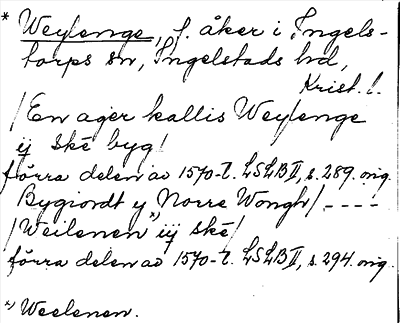 * Weylenge, f. åker i Ingels-
torps sn, Ingelstads hd,
Krist. l.
/En ager kallis Weylenge
ij ské byg/
förra delen av 1570-t. LSLB II, s. 289. orig.
Bygiordt y Norre Wongh/----
/Weilenen x) iij ské/
förra delen av 1570-t. LSLB II, s. 294. orig.
x) Weelenen.